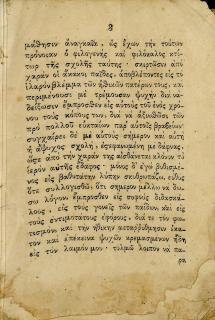 8
μάθησιν ἀναγκαῖα, ὡς ἔχων τὴν τούτων
πρόνοιαν ὁ φιλογενὴς καὶ φιλόκαλος κτί-
τωρ τῆς σχολῆς ταύτης· σκιρτῶσιν ἀπὸ
χαρὰν οἱ ἄκακοι παῖδες, ἀποβλέποντες εἰς τὸ
ἱλαρὸν βλέμμα τῶν ἠθικῶν πατέρων τους, καὶ
περιμένουσι μὲ τρέμουσαν ψυχὴν διὰ νὰ
δείξωσιν ἔμπροσθεν εἰς αὐτοὺς τοῦ ἑνὸς χρό-
νου τοὺς κόπους των, διὰ νὰ ἀξιωθῶσι τῶν
πρὸ πολλοῦ εὐκταίων παρ' αὐτοῖς βραβείων·
συγχαίρει δὲ μὲ αὐτοὺς σήμερον καὶ αὐτὴ
ἡ ἄψυχος σχολὴ, ἐστεφανωμένη μὲ δάφνας,
ὥστε ἀπὸ τὴν χαράν της αἰσθάνεται κλόνον τὸ
ἱερὸν αὐτῆς ἔδαφος· μόνος δ' ἐγὼ βυθισμέ-
νος εἰς βαθυτάτην λύπην σκυθρωπάζω, εὐθὺς
ὅτε συλλογισθῶ, ὅτι σήμερον μέλλω νὰ δώ-
σω λόγον ἔμπροσθεν εἰς σοφοὺς διδασκά-
λους, εἰς τοὺς γονεῖς τῶν παίδων, καὶ εἰς
τοὺς ἐντιμοτάτους ἐφόρους, διά τε τὸν φω-
τισμὸν, καὶ τὴν ἠθικὴν μεταῤῥύθμησιν ἑκα-
τὸν καὶ ἐπέκεινα ψυχῶν κρεμασμένων ἤδη
εἰς τὸν λαιμόν μου· τολμῶ λοιπὸν νὰ πα-
ρα